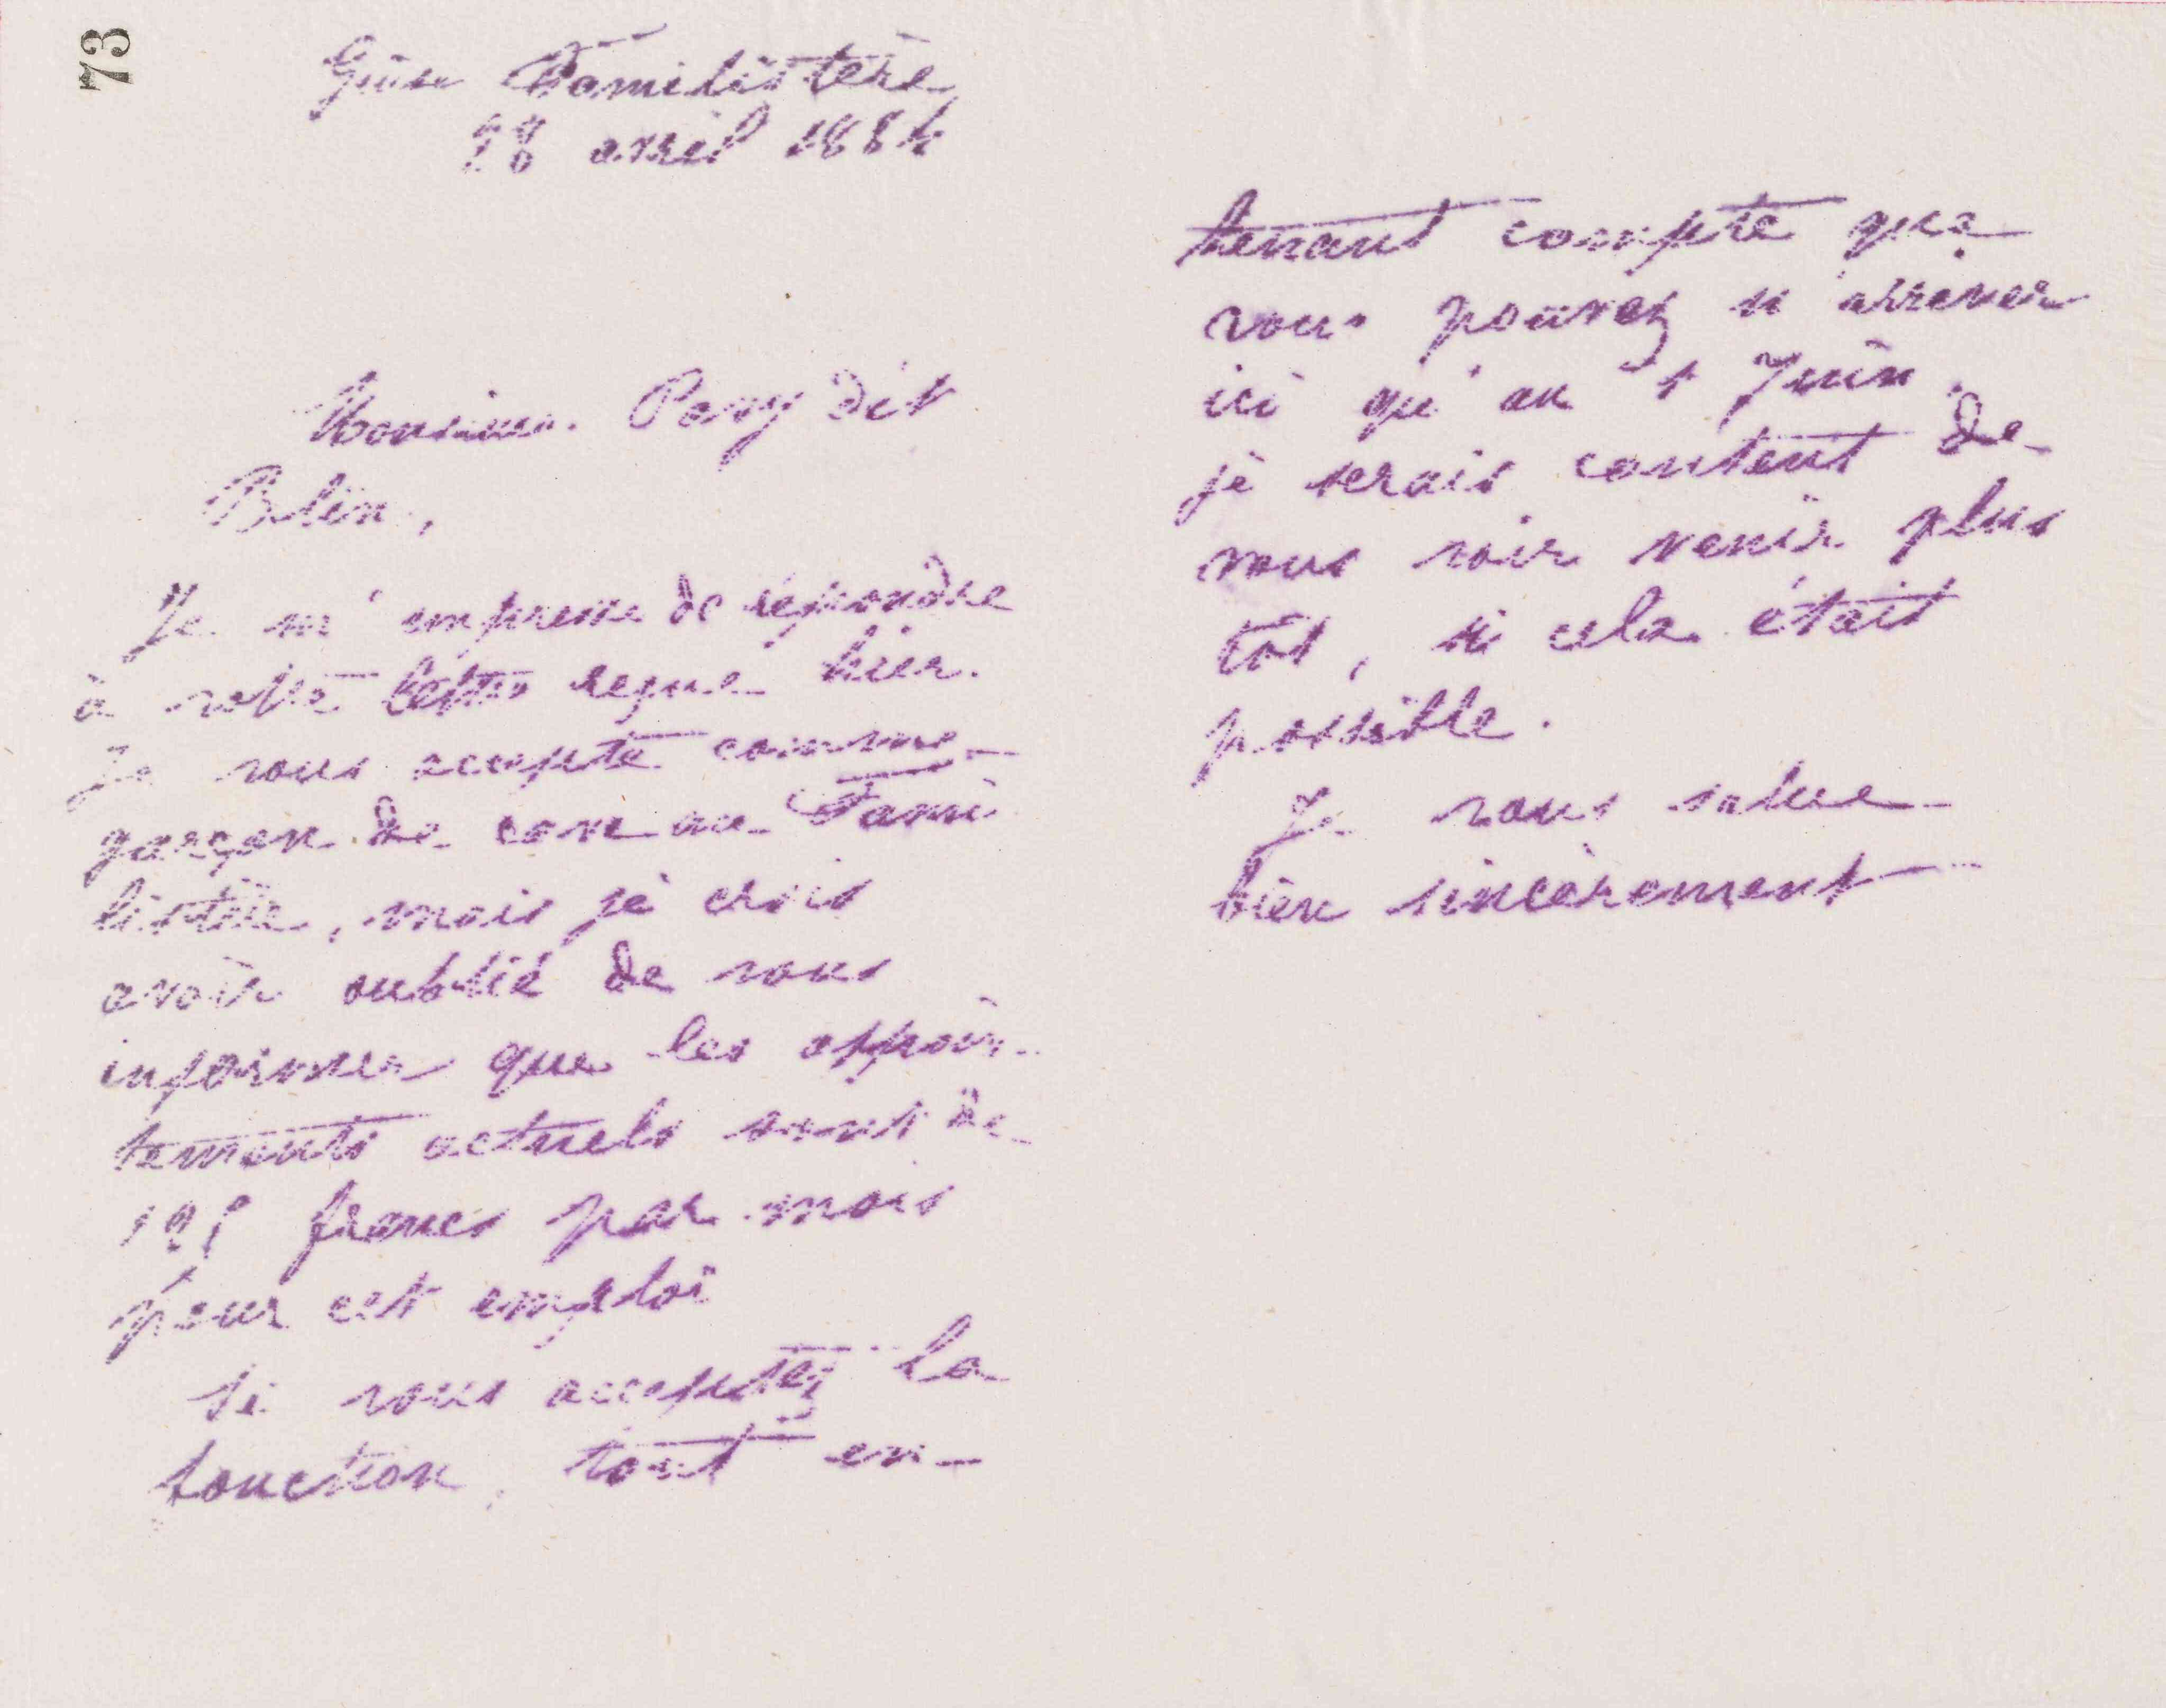 73
Guise Familistère
28 avril 1884
Monsieur Pavy dit
Blin,
Je m'empresse de répondre
à votre lettre reçue hier.
Je vous accepte comme
garçon de cour au Fami
listère, mais je crois
avoir oublié de vous
informer que les appoin-
tements actuels sont de
125 francs par mois
pour cet emploi
Si vous acceptez la
fonction, tout en
tenant compte que
vous pouvez n'arriver
ici qu'au 1 Juin,
je serais content de
vous voir venir plus
tôt, si cela était
possible.
Je vous salue
bien sincèrement